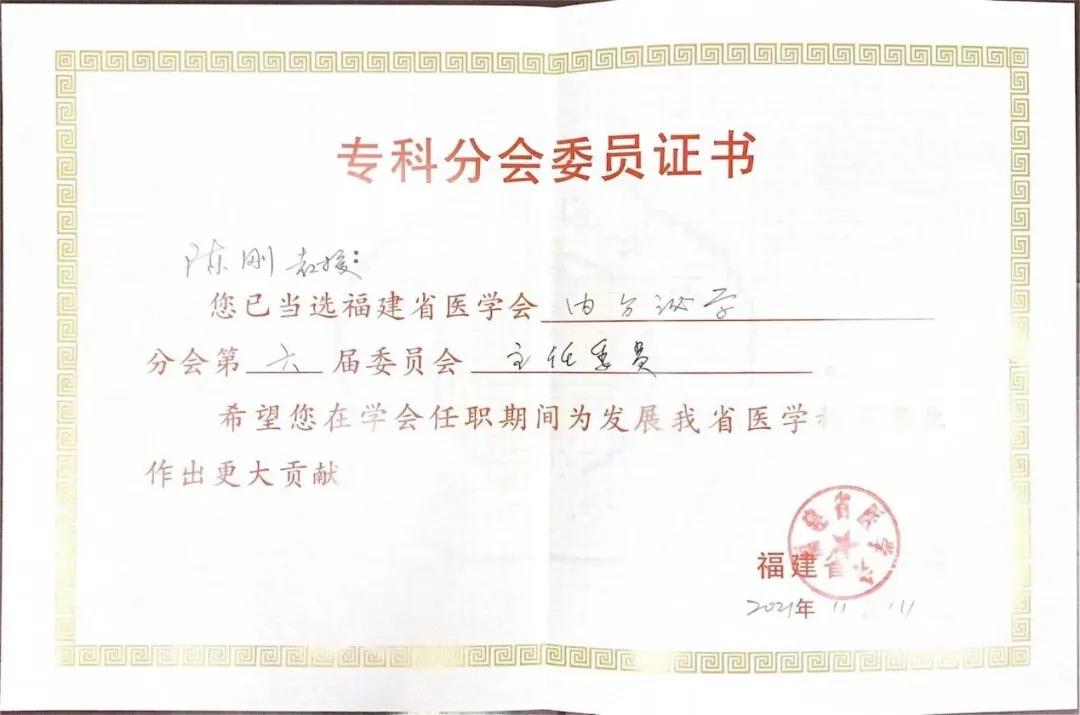 专科分会委员证书
陈刚教授:
您已当选福建省医学会 内分泌学
分会第 六 届委员会 主任委员。
希望您在学会任职期间为发展我省医学
作出更大贡献
福建省医学会
福建省
2021年 11